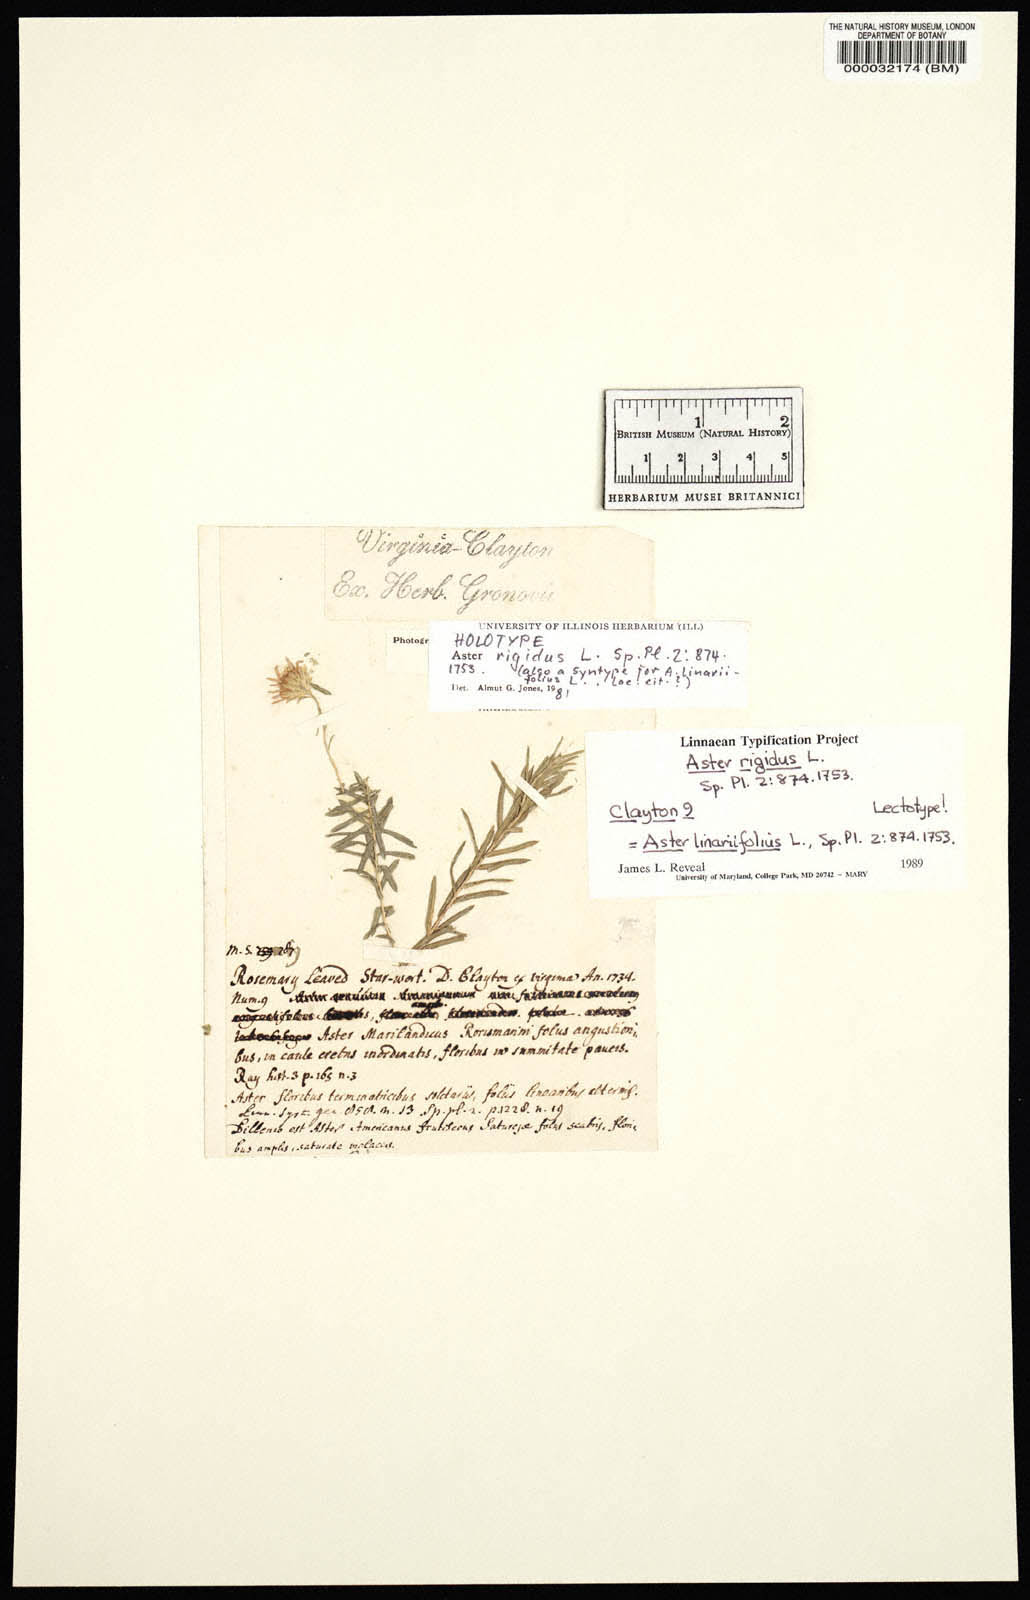 THE NATURAL HISTORY MUSEUM, LONDON
DEPARTMENT OF BOTANY
000032174 (BM)
1 2
BRITISH MUSEUM (NATURAL HISTORY)
1 2 3 4 5
HERBARIUM MUSEI BRITANNICI
Virginia-Clayton
Ex. Herb. Gronovii
Photogr
UNIVERSITY OF ILLINOIS HERBARIUM (ILL)
HOLOTYPE
Aster rigidus L. Sp. Pl. 2: 874.
1753. (also a syntype for A. linarii-
folius L. . loc. cit. !)
Det. Almut G. Jones, 1981
Linnaean Typification Project
Aster rigidus L.
Sp. Pl. 2: 874. 1753.
Clayton 9 Lectotype!
= Aster linariifolius L., Sp. Pl. 2: 874. 1753.
James L. Reveal 1989
University of Maryland, College Park, MD 20742 – MARY
M. S.
Rosemary Leaved Star-wort. D. Clayton ex Virginia An. 1734.
Num. 9
Aster Marilandicus Rorismarini folius angustiori,
bus, in caule cretus inordinatis, floribus in summitate paucis.
Ray hist. 3 p. 165 n. 3
Aster floribus terminatricibus solitariis, foliis linearibus alternis.
Linn. syst. gen. 858. n. 13 Sp. pl. 2. p. 1228. n. 19
Dillenio est Aster Americanus frutescens Saturejæ foliis scabris, flori,
bus amplis, saturate violaceis.